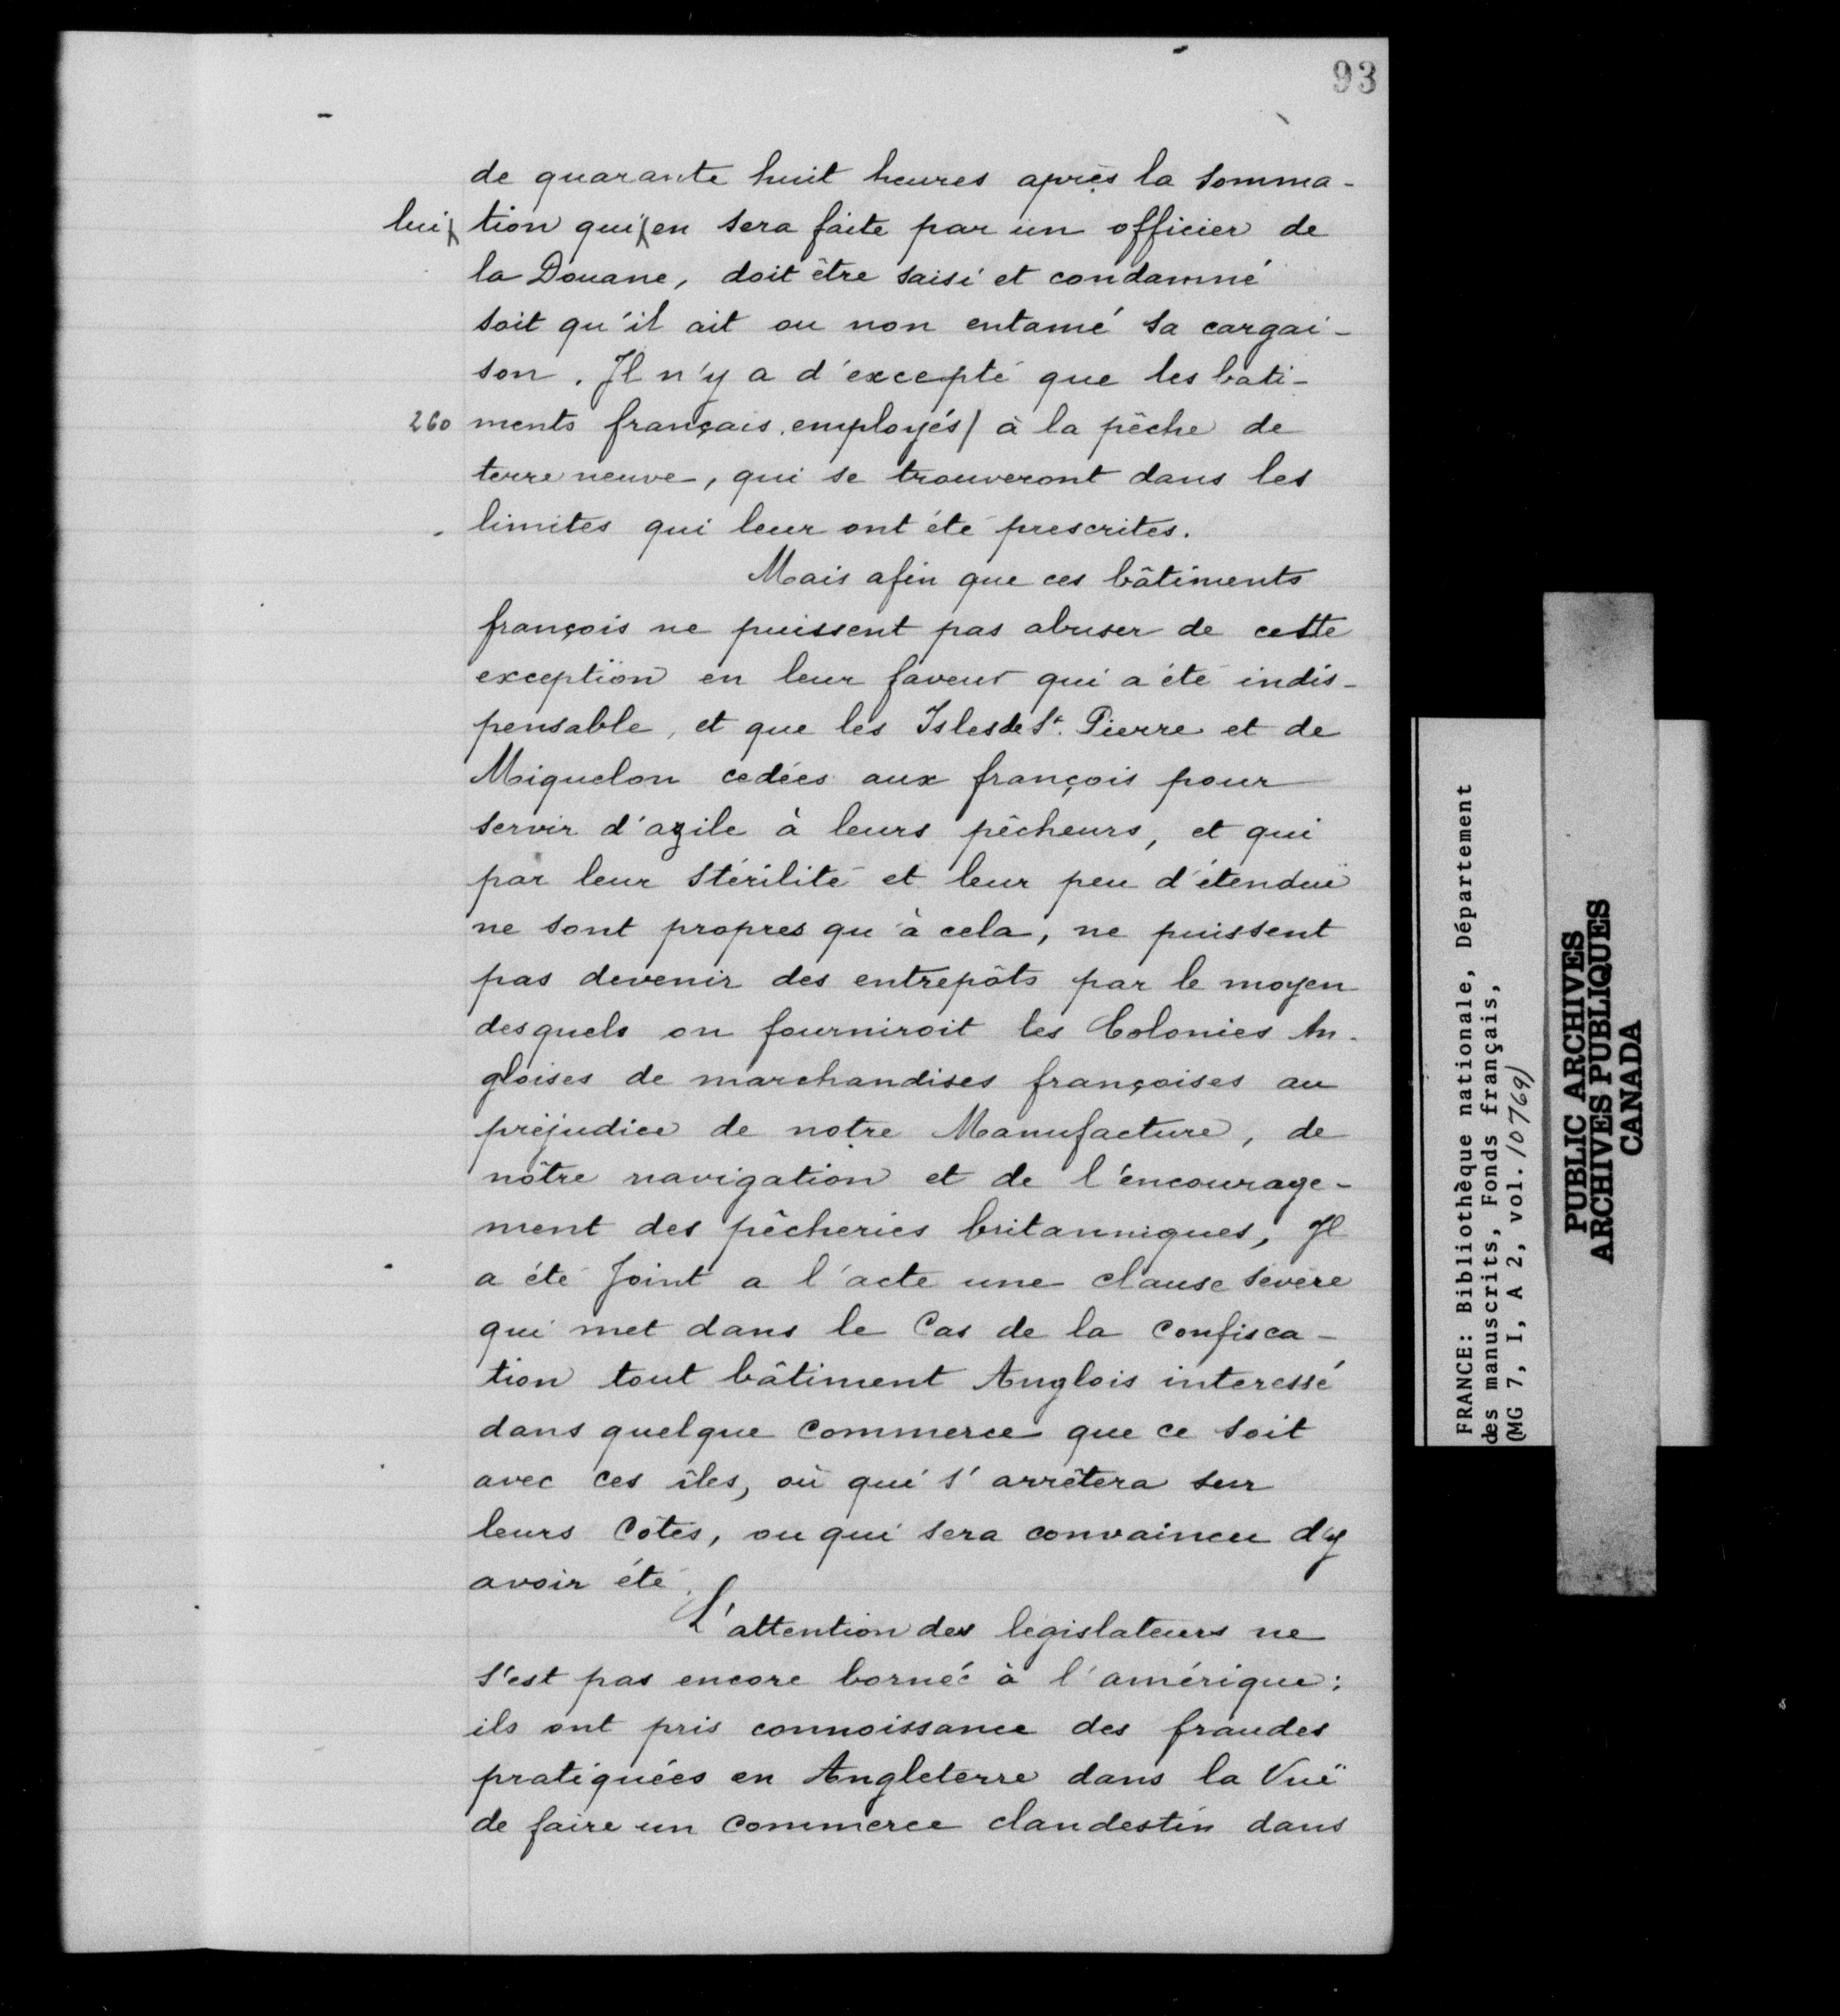 93
de quarante huit heures après la somma-
lui tion qui en sera faite par un officier de
la Douane, doit être saisi et condamné
soit qu'il ait ou non entamé sa cargai-
son. Il n'y a d'excepté que les bati-
260 ments français employés/ à la pêche de
terre neuve, qui se trouveront dans les
limites qui leur ont été prescrites.
Mais afin que ces bâtiments
françois ne puissent pas abuser de cette
exception en leur faveur qui a été indis-
pensable, et que les Isles de St. Pierre et de
Miquelon cedées aux françois pour
servir d'azile à leurs pêcheurs, et qui
par leur stérilité et leur peu d'étenduë
ne sont propres qu'à cela, ne puissent
pas devenir des entrepôts par le moyen
desquels on fourniroit les Colonies An-
gloises de marchandises françoises au
préjudice de notre Manufacture, de
nôtre navigation et de l'encourage-
ment des pêcheries britanniques, Il
a été Joint a l'acte une clause sévère
qui met dans le Cas de la Confisca-
tion tout bâtiment Anglois interessé
dans quelque Commerce que ce soit
avec ces îles, où qui s'arrêtera sur
leurs Côtes, ou qui sera convaincu d'y
avoir été.
L'attention des législateurs ne
s'est pas encore bornée à l'amérique:
ils ont pris connoissance des fraudes
pratiquées en Angleterre dans la Vuë
de faire un Commerce clandestin dans
FRANCE: Bibliothèque nationale, Département
des manuscrits, Fonds français,
(MG 7, I, A 2, vol. 10769)
PUBLIC ARCHIVES
ARCHIVES PUBLIQUES
CANADA